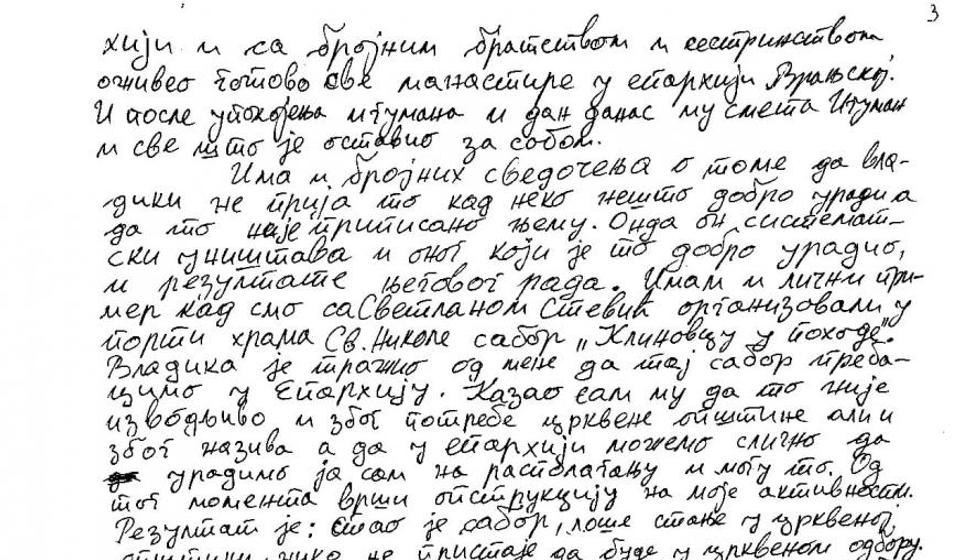 3
хији и са бројним братством и сестринством
оживео готово све манастире у епархији Врањској.
И после упокојења игумана и дан данас му смета Игуман
и све што је оставио за собом.
Има и бројних сведочења о томе да вла-
дики не прија то кад неко нешто добро уради а
да то није приписано њему. Онда он системат-
ски уништава и оног који је то добро урадио,
и резултате његовог рада. Имам и лични при-
мер кад смо са Светланом Стевић организовали у
порти храма Св. Николе сабор „Клиновцу у походе“.
Владика је тражио од мене да тај сабор преба-
цимо у Епархију. Казао сам му да то није
изводљиво и због потребе црквене општине али и
због назива а да у епархији можемо слично да
урадимо ја сам на располагању и могу то. Од
тог момента врши опструкцију на моје активности.
Резултат је: стао је сабор, лоше стање у црквеној
општини нико не пристаје да буде у црквеном одбору.